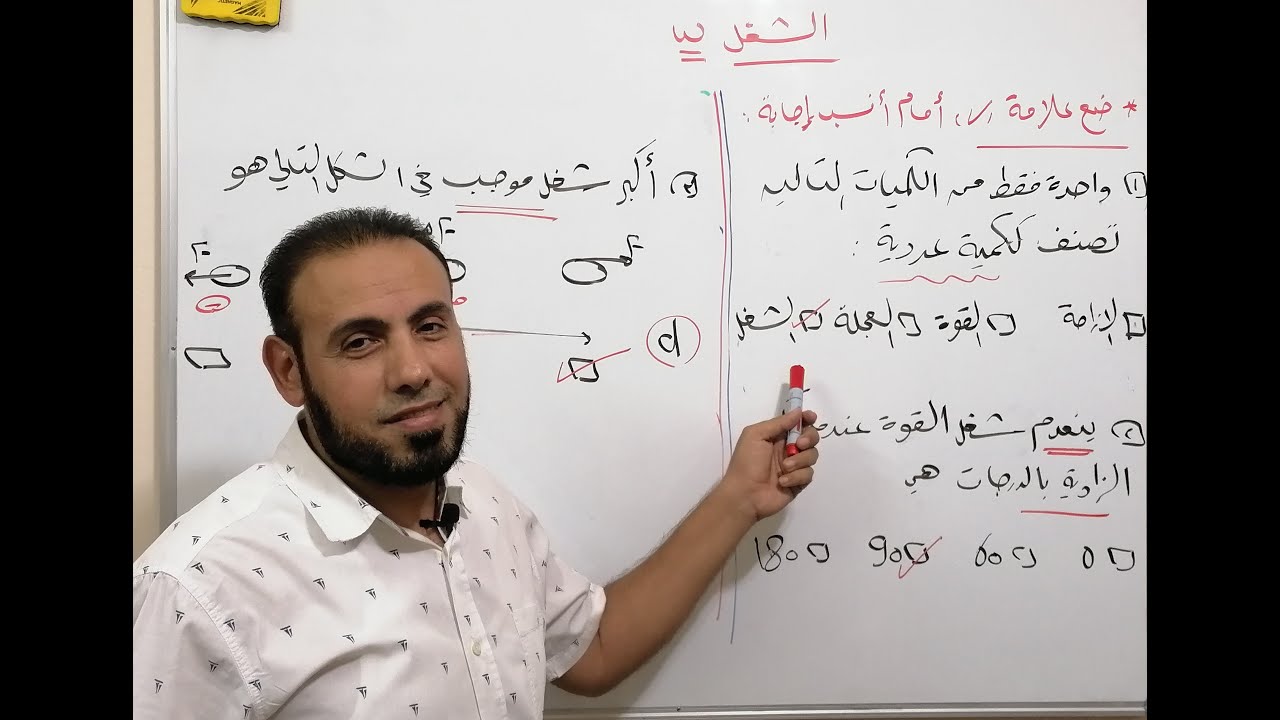 الشغل س
* ضع علامة (√) أمام أنسب إجابة :
① واحدة فقط من الكميات التاليه
تصنف ككمية عددية :
الإزاحة القوة العجلة الشغل
② ينعدم شغل القوة عندما
الزاوية بالدرجات هي
0 60 90 180
③ أكبر شغل موجب في الشكل التالي هو
F F F
d